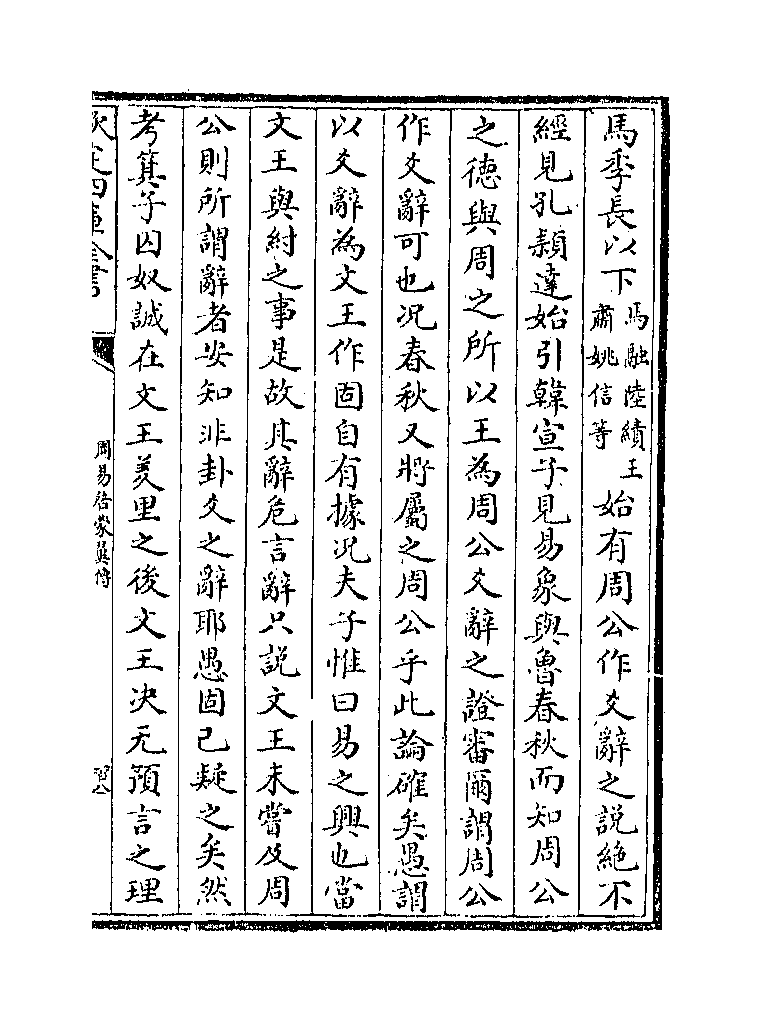 馬季長以下馬融陸績王肅姚信等始有周公作爻辭之說絶不
經見孔頴達始引韓宣子見易象與魯春秋而知周公
之德與周之所以王為周公爻辭之證審爾謂周公
作爻辭可也况春秋又將屬之周公乎此論確矣愚謂
以爻辭為文王作固自有據况夫子惟曰易之興也當
文王與紂之事是故其辭危言辭只説文王未嘗及周
公則所謂辭者安知非卦爻之辭耶愚固已疑之矣然
考箕子囚奴誠在文王羑里之後文王决无預言之理
欽定四庫全書
周易啓蒙翼傳